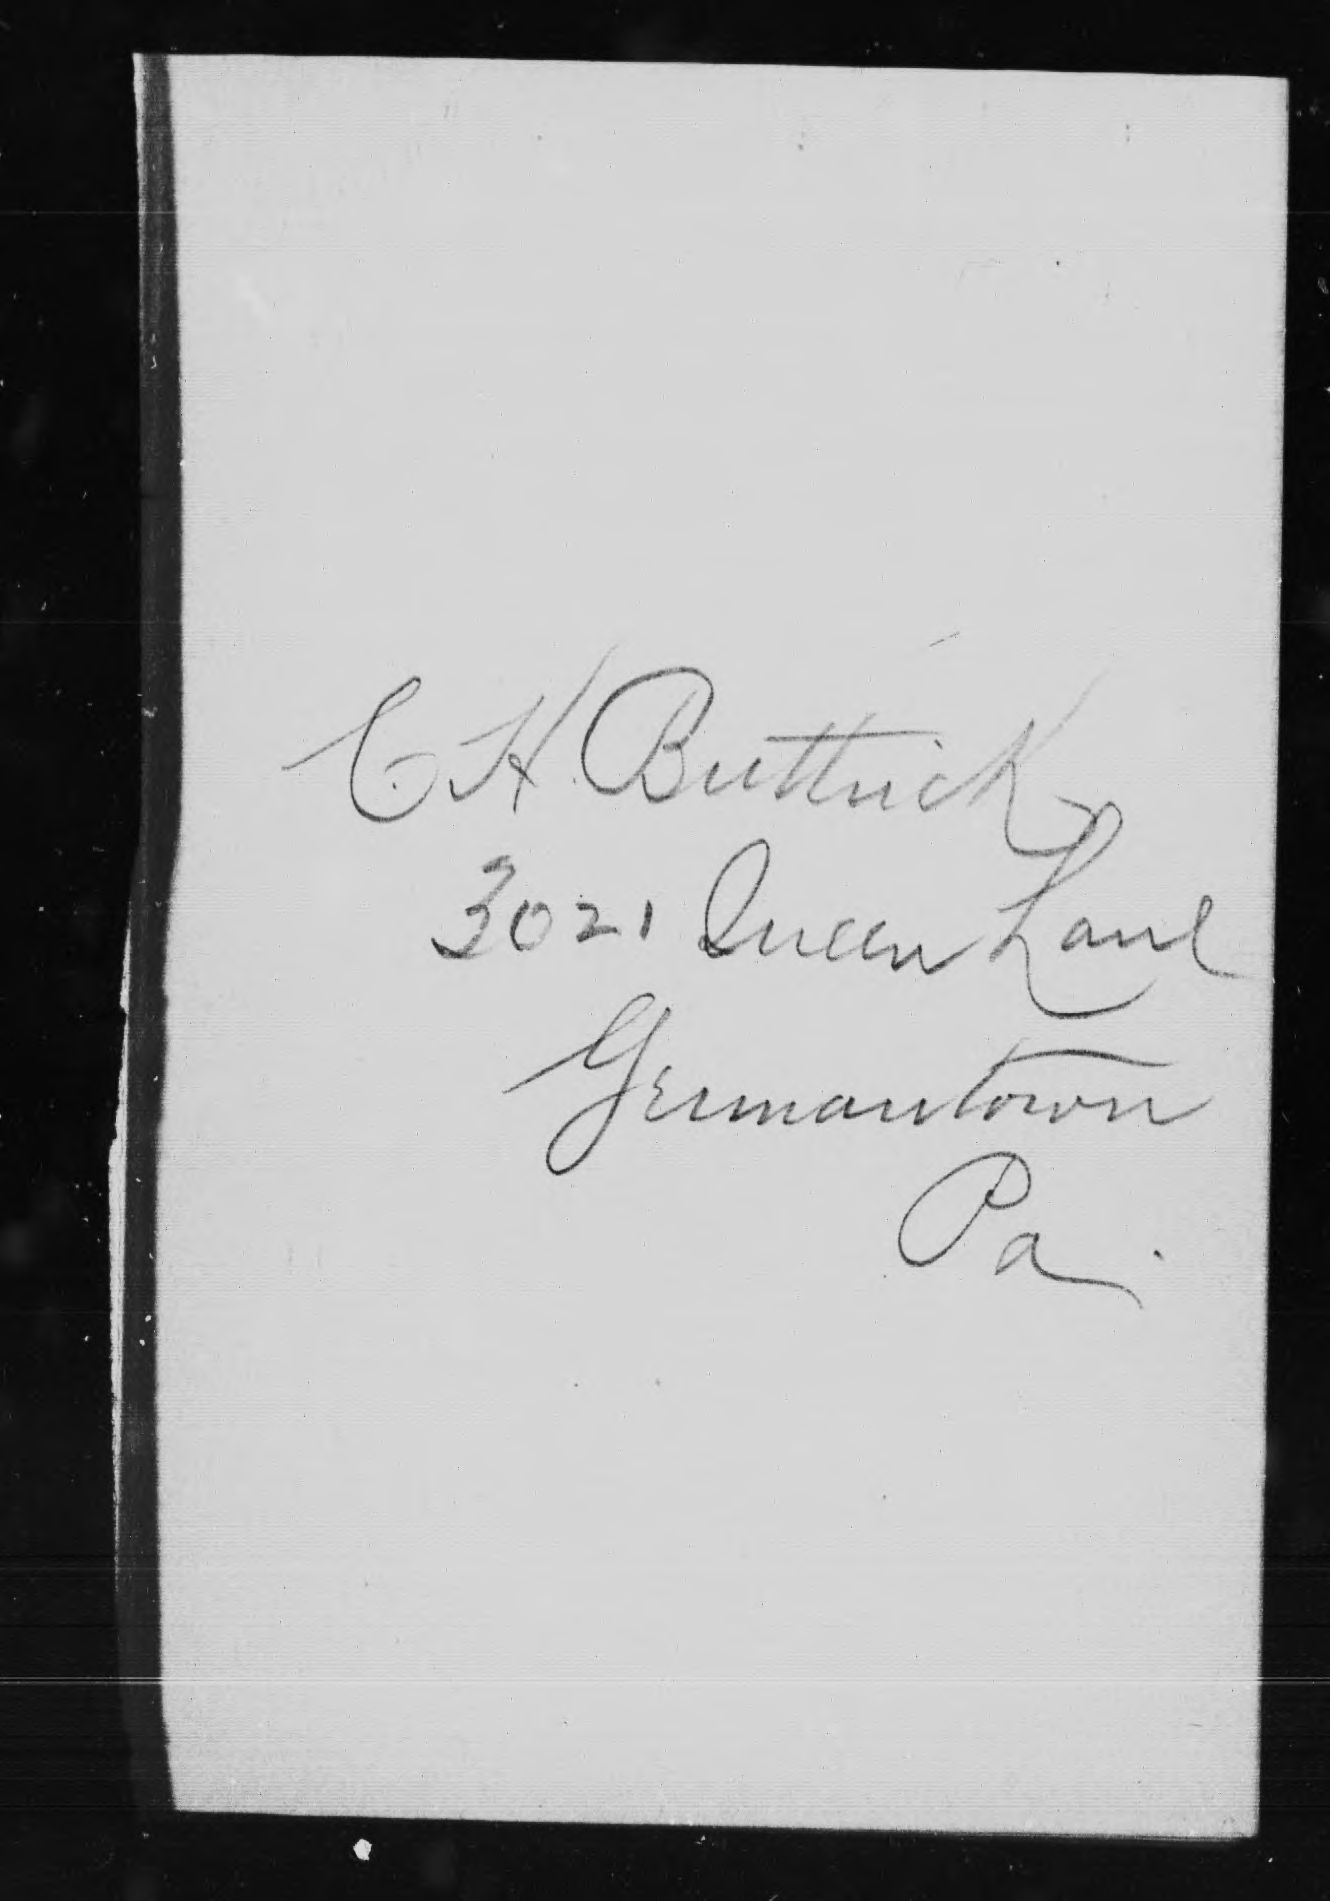 C H Buttrick
3021 Queen Lane
Germantown
Pa.